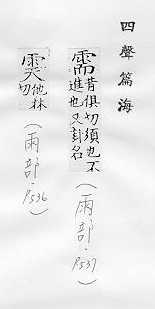 四聲篇海
需 昔俱切須也不
進也又卦名
(雨部.P537)
他林
切
(雨部.P536)